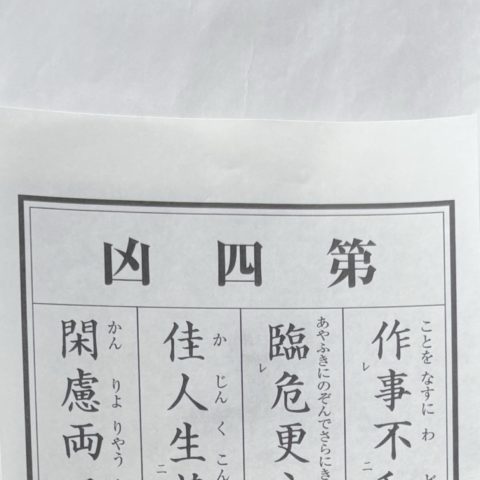 第四凶
作事不
ことを なすに わ
レ
臨危更
あやふきにのぞんでさらにき
レ
佳人生
か じん く こん
二
閑慮両
かん りよ りやう